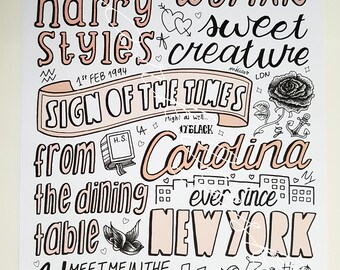 harry
styles
WOMAN
sweet
creature
1ST FEB 1994
LDN
SIGN OF THE TIMES
Might as well...
H.S.
LA
17 BLACK
from
the dining
table
Carolina
ever since
NEW YORK
MEET ME IN THE